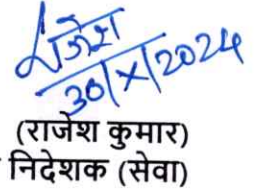 राजेश
30/X/2024
(राजेश कुमार)
निदेशक (सेवा)